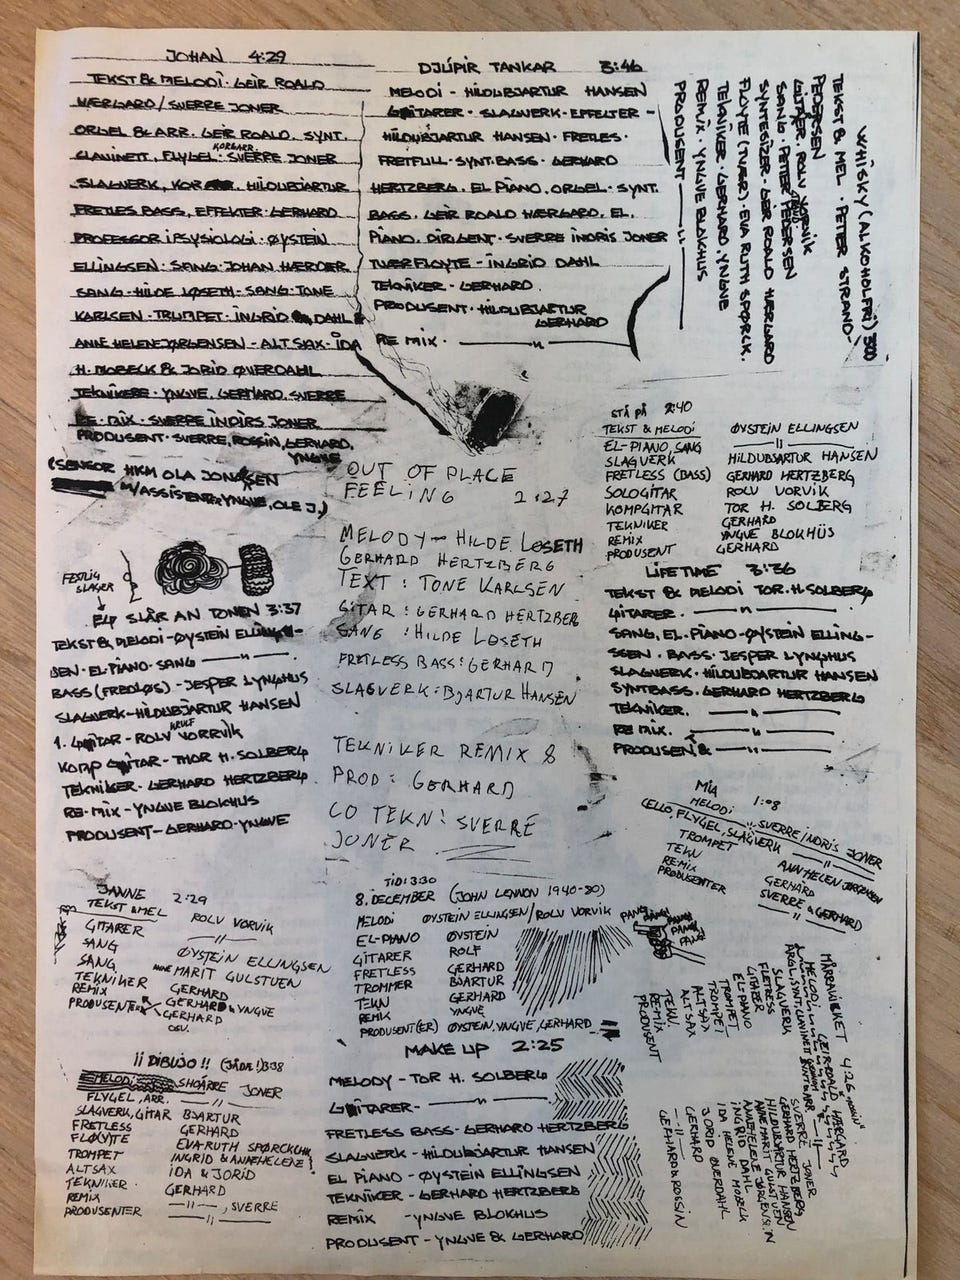 JOHAN 4:29
TEKST & MELODI · GEIR ROALD
HÆRGARD / SVERRE JONER
ORGEL & ARR. GEIR ROALD. SYNT.
CLAVINETT, FLYGEL · KORARR. SVERRE JONER
SLAGVERK, KOR HILDUBJARTUR
FRETLES BASS, EFFEKTER · GERHARD
PROFESSOR I PSYSIOLOGI · ØYSTEIN
ELLINGSEN · SANG · JOHAN
SANG · HILDE LØSETH · SANG · TONE
KARLSEN · TRUMPET · INGRID DAHL &
ANNE HELENE JØRGENSEN - ALTSAX · IDA
H. MOBECK & JORID ØVERDAHL
TEKNIKERE · YNGVE, GERHARD, SVERRE
RE·MIX - SVERRE INDIRS JONER
PRODUSENT · SVERRE, ROSSIN, GERHARD,
YNGVE
(SENSOR HKM OLA JONASSEN
M/ASSISTENTER YNGVE, OLE J.)
DJÚPIR TANKAR 3:46
MELODI - HILDUBJARTUR HANSEN
GITARER - SLAGVERK - EFFEKTER -
HILDUBJARTUR HANSEN · FRETLES ·
FRETFULL · SYNT. BASS · GERHARD
HERTZBERG. EL PIANO, ORGEL · SYNT.
BASS. GEIR ROALD HÆRGARD. EL.
PIANO, DIRIGENT · SVERRE INDRIS JONER
TVÆRFLOYTE - INGRID DAHL
TEKNIKER - GERHARD
PRODUSENT · HILDUBJARTUR
GERHARD
RE MIX · —"—
WHISKY (ALKOHOLFRI) 3:00
TEKST & MEL · PETTER STRAND-
PEDERSEN
GITARER · ROLV VORVIK
SANG · PETTER STRAND PEDERSEN
SYNTESIZER · GEIR ROALD HÆRGARD
FLOYTE (TVÆR) · EVA RUTH SPØRCK.
TEKNIKER · GERHARD, YNGVE
REMIX · YNGVE BLOKHUS
PRODUSENT —"—
STÅ PÅ 2:40
TEKST & MELODI ØYSTEIN ELLINGSEN
EL-PIANO, SANG —"—
SLAGVERK HILDUBJARTUR HANSEN
FRETLESS (BASS) GERHARD HERTZBERG
SOLOGITAR ROLV VORVIK
KOMPGITAR TOR H. SOLBERG
TEKNIKER GERHARD
REMIX YNGVE BLOKHUS
PRODUSENT GERHARD
OUT OF PLACE
FEELING 2:27
MELODY - HILDE LØSETH
GERHARD HERTZBERG
TEXT : TONE KARLSEN
GITAR : GERHARD HERTZBERG
SANG : HILDE LØSETH
FRETLESS BASS : GERHARD
SLAGVERK : BJARTUR HANSEN
TEKNIKER REMIX &
PROD : GERHARD
CO TEKN : SVERRE
JONER
FESTLIG
SLAGER
E4 SLÅR AN TONEN 3:37
TEKST & MELODI - ØYSTEIN ELLING-
SEN · EL-PIANO · SANG —"—
BASS (FREDLØS) - JESPER LYNGHUS
SLAGVERK - HILDUBJARTUR HANSEN
1. GITAR - ROLV VORVIK
KOMP GITAR - THOR H. SOLBERG
TEKNIKER - GERHARD HERTZBERG
RE-MIX - YNGVE BLOKHUS
PRODUSENT - GERHARD - YNGVE
LIFETIME 3:36
TEKST & MELODI TOR.H.SOLBERG
GITARER. —"—
SANG, EL. PIANO - ØYSTEIN ELLING-
SSEN. BASS · JESPER LYNGHUS
SLAGVERK · HILDUBJARTUR HANSEN
SYNTBASS. GERHARD HERTZBERG
TEKNIKER. —"—
RE MIX. —"—
PRODUSEN & —"—
MIA 1:08
MELODI SVERRE INDRIS JONER
CELLO, FLYGEL, SLAGVERK —"—
TROMPET ANN HELEN JØRGENSEN
TEKN GERHARD
REMIX SVERRE & GERHARD
PRODUSENTER —"—
JANNE 2:29
TEKST & MEL ROLV VORVIK
GITARER —"—
SANG ØYSTEIN ELLINGSEN
SANG ANNE MARIT GULSTUEN
TEKNIKER GERHARD
REMIX GERHARD & YNGVE
PRODUSENTER GERHARD
OSV.
TID: 3:30
8. DECEMBER (JOHN LENNON 1940-80)
MELODI ØYSTEIN ELLINGSEN / ROLV VORVIK
EL-PIANO ØYSTEIN
GITARER ROLF
FRETLESS GERHARD
TROMMER BJARTUR
TEKN GERHARD
REMIX YNGVE
PRODUSENT(ER) ØYSTEIN, YNGVE, GERHARD
PANG PANG PANG PANG PANG
MAKE UP 2:25
MELODY - TOR H. SOLBERG
GITARER - —"—
FRETLESS BASS - GERHARD HERTZBERG
SLAGVERK - HILDUBJARTUR HANSEN
EL PIANO - ØYSTEIN ELLINGSEN
TEKNIKER - GERHARD HERTZBERG
REMIX - YNGVE BLOKHUS
PRODUSENT - YNGVE & GERHARD
¡¡ DIBUJO !! (JÅDA!) 3:38
MELODI SHOARRE JONER
FLYGEL, ARR. —"—
SLAGVERK, GITAR BJARTUR
FRETLESS GERHARD
FLØ(Y)TE EVA-RUTH SPØRCK
TROMPET INGRID & ANNE HELENE
ALTSAX IDA & JORID
TEKNIKER GERHARD
REMIX —"—, SVERRE
PRODUSENTER —"—
4:26
MELODI GEIR ROALD HÆRGARD
SVERRE JONER
FRETLESS GERHARD HERTZBERG
SLAGVERK HILDUBJARTUR HANSEN
GITARER
EL-PIANO ANNE MARIT GULSTUEN
TROMPET ANNE HELENE JØRGENSEN
TROMPET INGRID DAHL
ALTSAX IDA HELENE MOBECK
ALTSAX JORID ØVERDAHL
TEKN. GERHARD
REMIX —"—
PRODUSENT GERHARD & ROSSIN